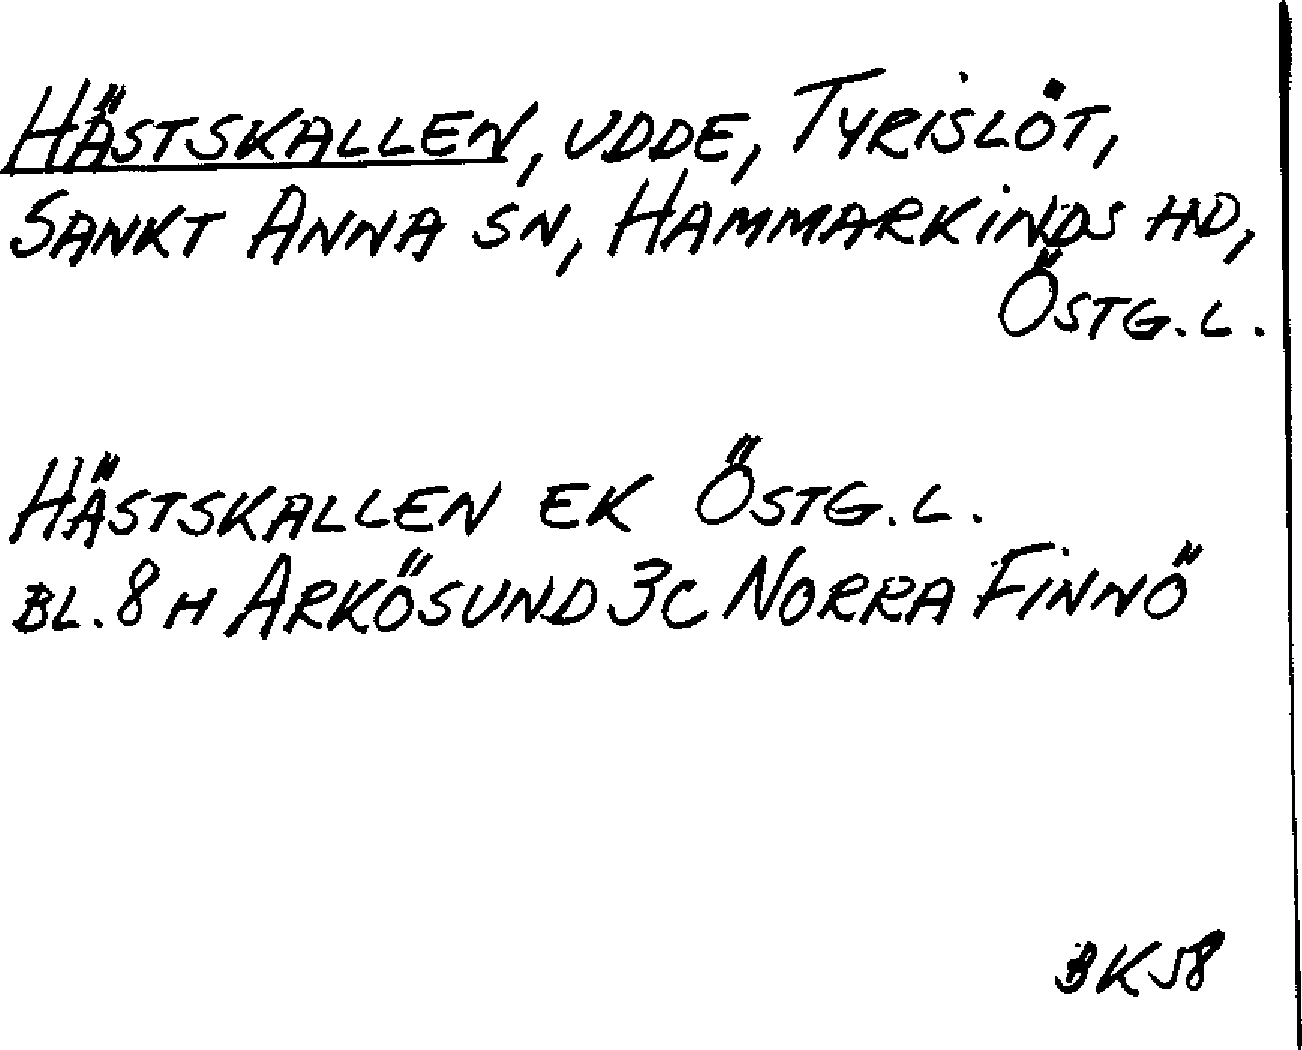 HÄSTSKALLEN, UDDE, TYRISLÖT,
SANKT ANNA SN, HAMMARKINDS HD,
ÖSTG.L.
HÄSTSKALLEN EK ÖSTG.L.
BL. 8 H ARKÖSUND 3C NORRA FINNÖ
BK58